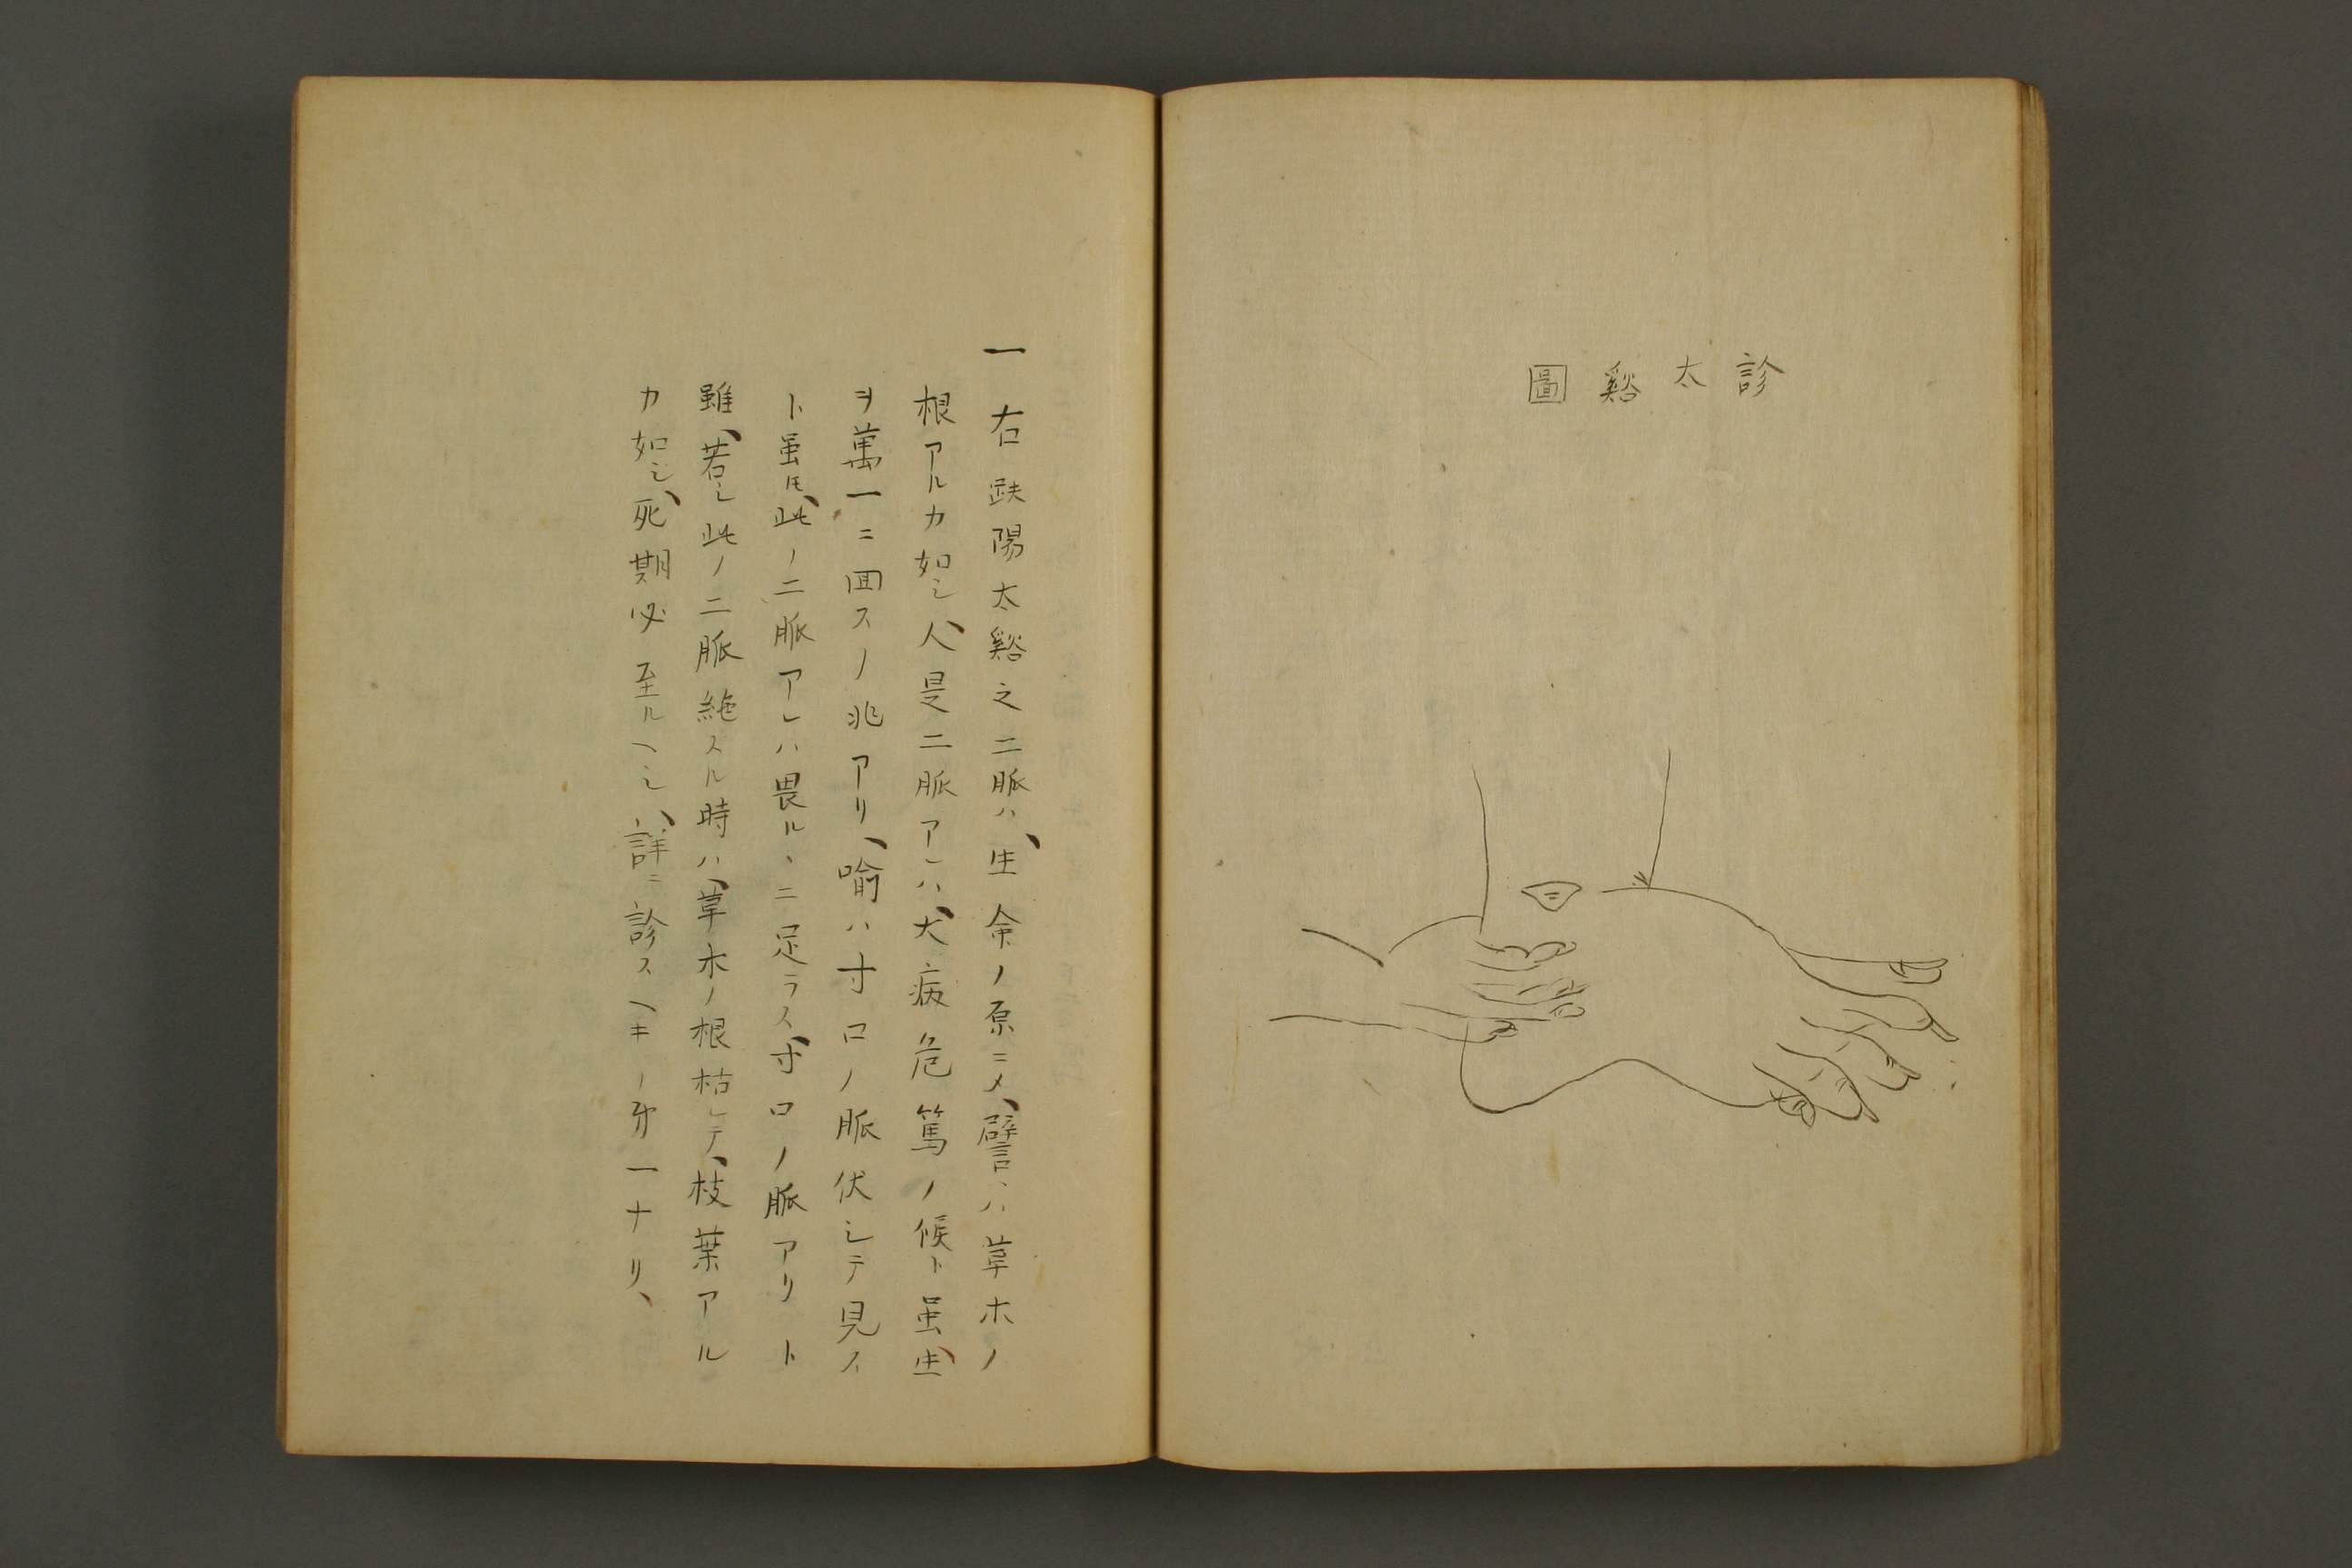 診太谿圖
一右趺陽太谿之二脈ハ、生命ノ原ニメ、譬ヘハ草木ノ
根アルカ如シ、人是二脈アレハ、大病危篤ノ候ト虽、生
ヲ萬一ニ囬スノ兆アリ、喻ハ寸口ノ脈伏シテ見ス
ト虽𪜈、此ノ二脈アレハ畏ルヽニ足ラス、寸口ノ脈アリト
雖、若シ此ノ二脈絶スル時ハ、草木ノ根枯レテ、枝葉アル
カ如シ、死期必至ルヘシ、詳ニ診スヘキノ㐧一ナリ、